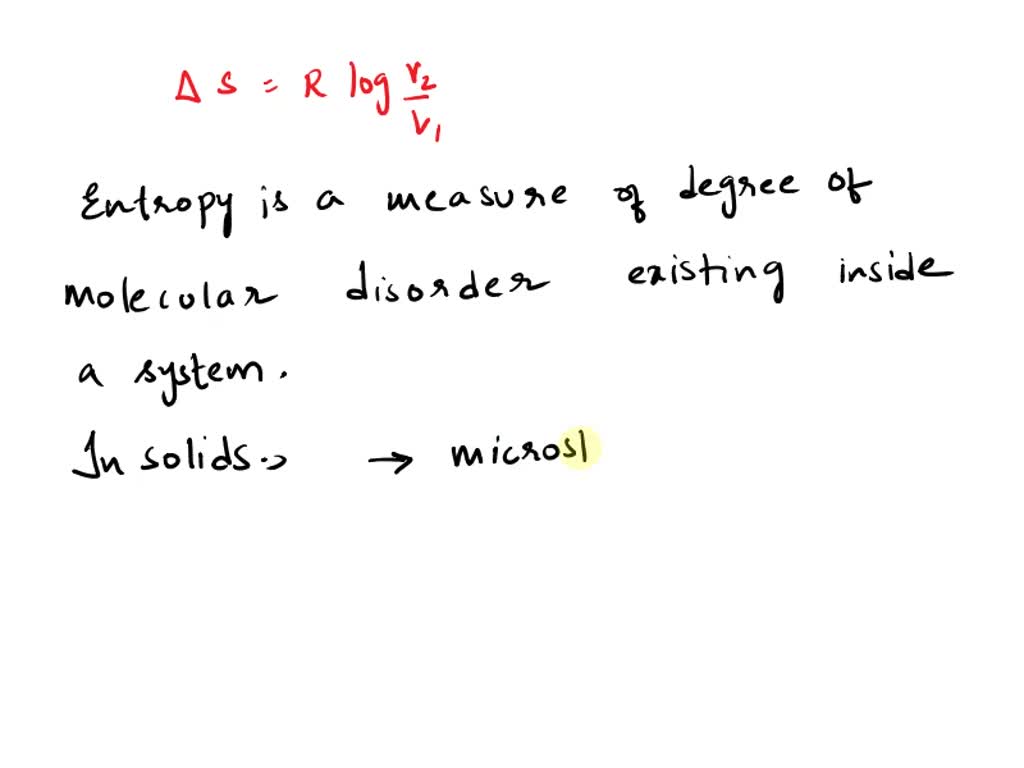 Δ S = R log V2/V1
Entropy is a measure of degree of
molecular disorder existing inside
a system.
In solids.→ → micros